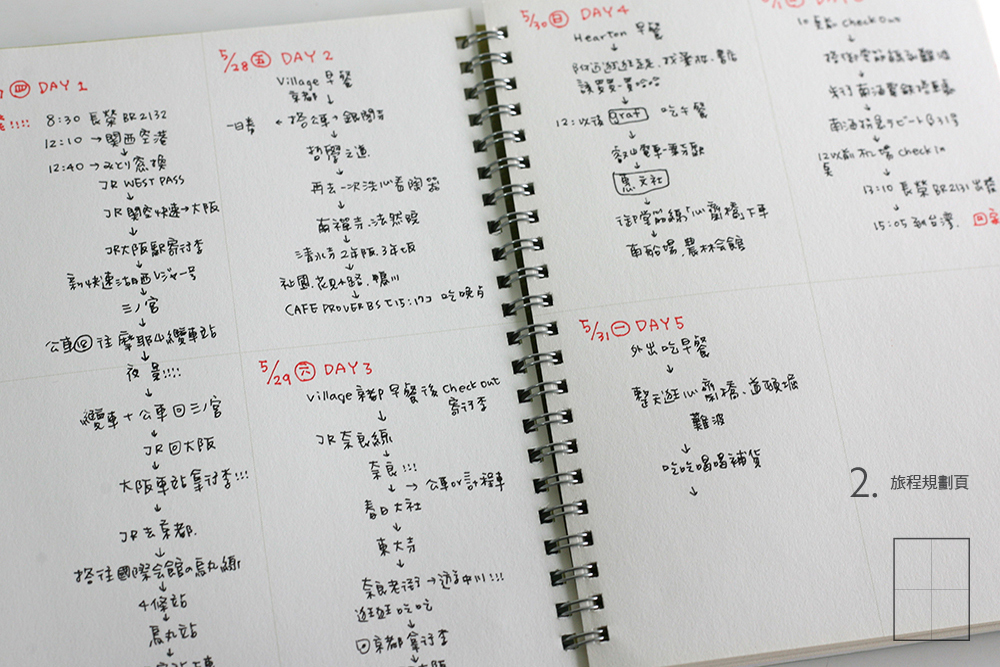 ㊃ DAY 1
8:30 長榮 BR2132
12:10 → 関西空港
12:40 → みどり窓換
JR WEST PASS
↓
JR 関空快速→大阪
↓
JR大阪駅寄行李
↓
新快速
↓
三ノ宮
↓
公車⑱往摩耶山纜車站
↓
夜景!!!!
↓
纜車+公車回三ノ宮
↓
JR回大阪
↓
大阪車站拿行李!!!
↓
JR去京都.
↓
搭往國際会館の烏丸線
↓
4條站
↓
烏丸站
↓
5/28 ㊄ DAY 2
Village 早餐
京都 ↓
← 搭公車→銀閣寺
↓
哲學之道
↓
再去一次洗心看陶器
↓
南禪寺.法然院
↓
清水寺 2年阪.3年坂
↓
祇園.花見小路.鴨川
↓
CAFE PROVERBS [15:17] 吃晚点
5/29 ㊅ DAY 3
Village 京都 早餐後 Check out
寄行李
↓
JR奈良線
↓
奈良!!!
↓ → 公車or計程車
春日大社
↓
東大寺
↓
奈良老街 → 遊中川!!!
逛逛吃吃
↓
回京都拿行李
↓
大阪
5/30 ㊐ DAY 4
Hearton 早餐
↓
12:以後 graf 吃午餐
↓
叡山電車
↓
惠文社
↓
御堂筋線「心齋橋」下車
↓
南船場,農林会館
5/31 ㊀ DAY 5
外出吃早餐
↓
整天逛心齋橋、道頓堀
難波
↓
吃吃喝喝補貨
↓
Check Out
↓
搭御堂筋線到難波
↓
↓
南海特急ラピートβ31号
↓
12以前 机場 check in
↓
13:10 長榮 BR2131 出發
↓
15:05 到台湾.
2. 旅程規劃頁